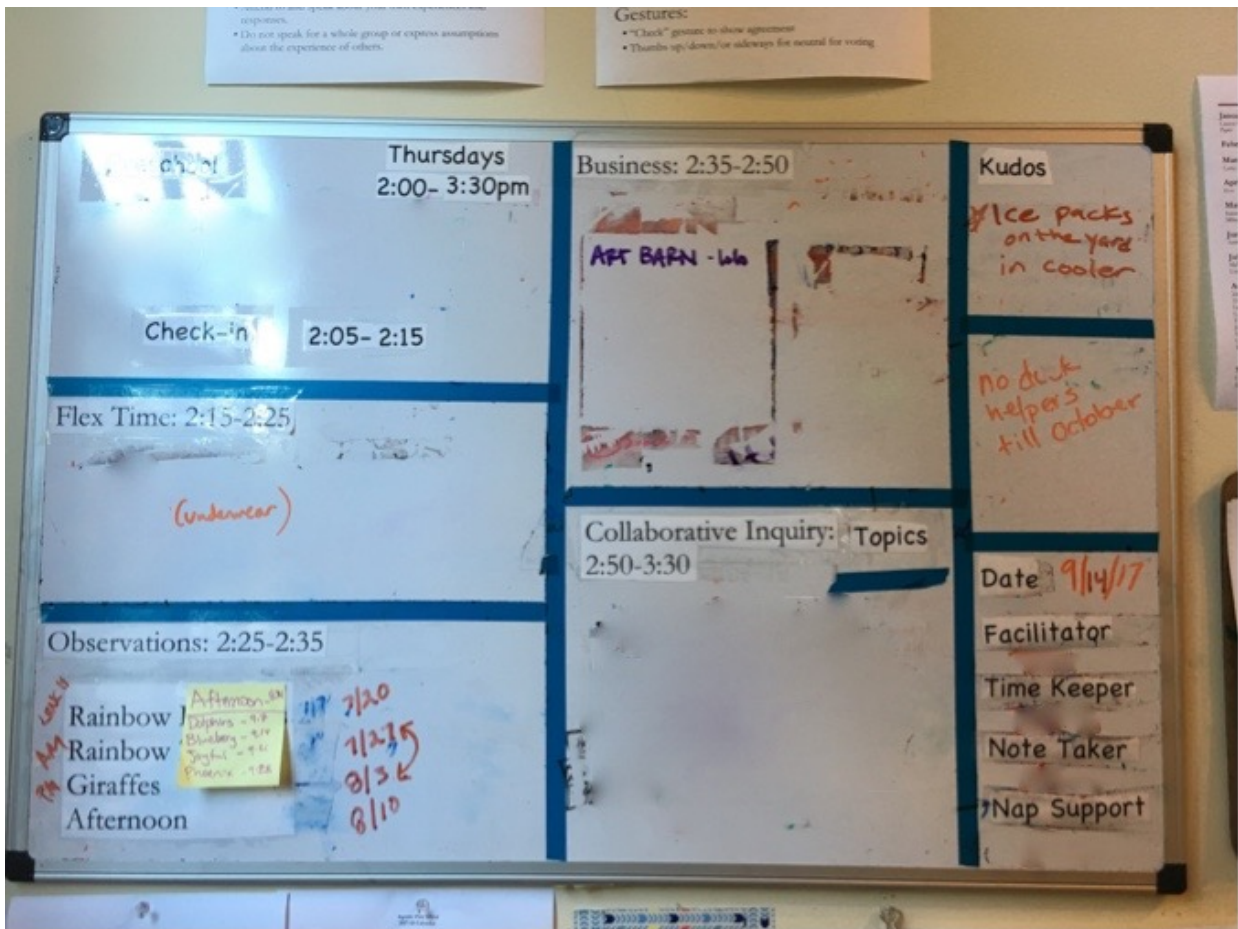 responses.
• Do not speak for a whole group or express assumptions
about the experience of others.
Gestures:
• "Check" gesture to show agreement
• Thumbs up/down/or sideways for neutral for voting
Thursdays
2:00- 3:30pm
Check-in 2:05- 2:15
Flex Time: 2:15-2:25
(underwear)
Observations: 2:25-2:35
Rainbow 7/20
Rainbow
Giraffes 8/3
Afternoon 8/10
Afternoon
Dolphins - 9.7
Blueberry -
Joyful -
Phoenix -
Business: 2:35-2:50
ART BARN -
Collaborative Inquiry: Topics
2:50-3:30
Kudos
Ice packs
on the yard
in cooler
no
helpers
till October
Date 9/14/17
Facilitator
Time Keeper
Note Taker
Nap Support